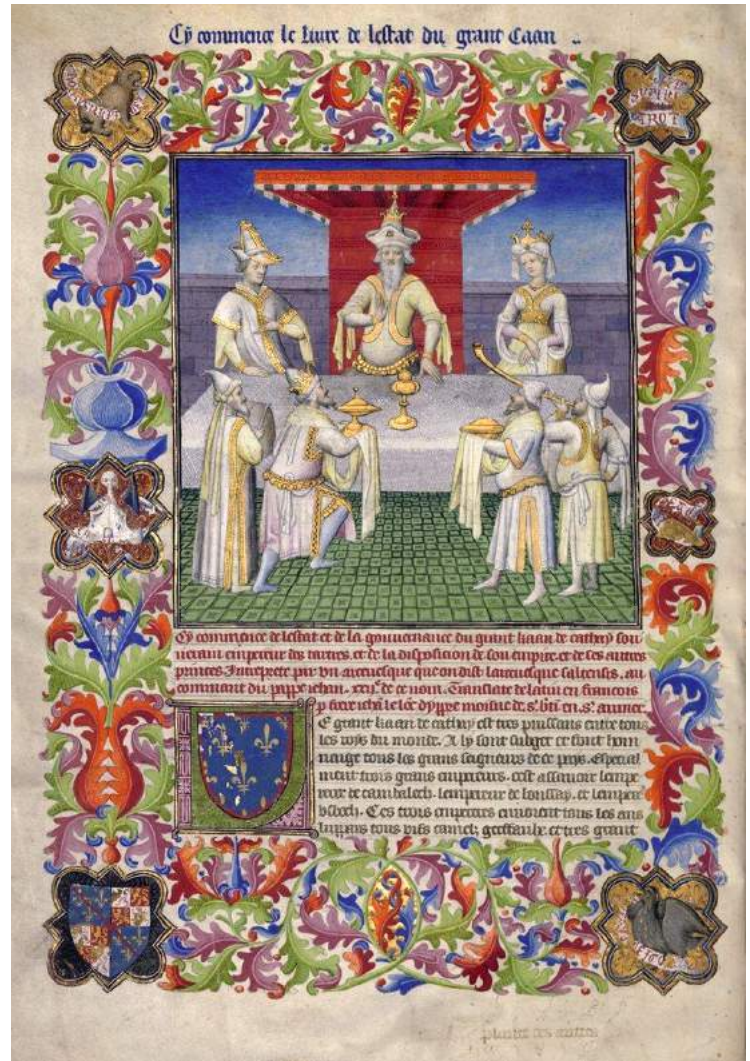 Cy commence le livre de lestat du grant Caan ..
Cy commence de lestat et de la gouvernance du grant kaan de cathay sou
verain empereur des tartres. et de la disposition de son empire. et de ses autres
princes. Interprete par un arcevesque que on dist larcevesque saltensis. au
commant du pappe jehan. xxije de ce nom. Translate de latin en francois
p frere jeha le lonc dyppre moisne de. s. bti. en. s. aumer.
Le grant kaan de cathay est tres puissans entre tous
les roys du monde. A ly sont subget ce font hom
maige tous les grans saigneurs de ce pays. Especial
ment trois grans empereurs. cest assavoir lempe
reor de cambalech. lempereur de boussay. et lempere
usbech. Ces trois empereres envoient tous les ans
luppars tous vifs camelz gerfaulx et tres grant